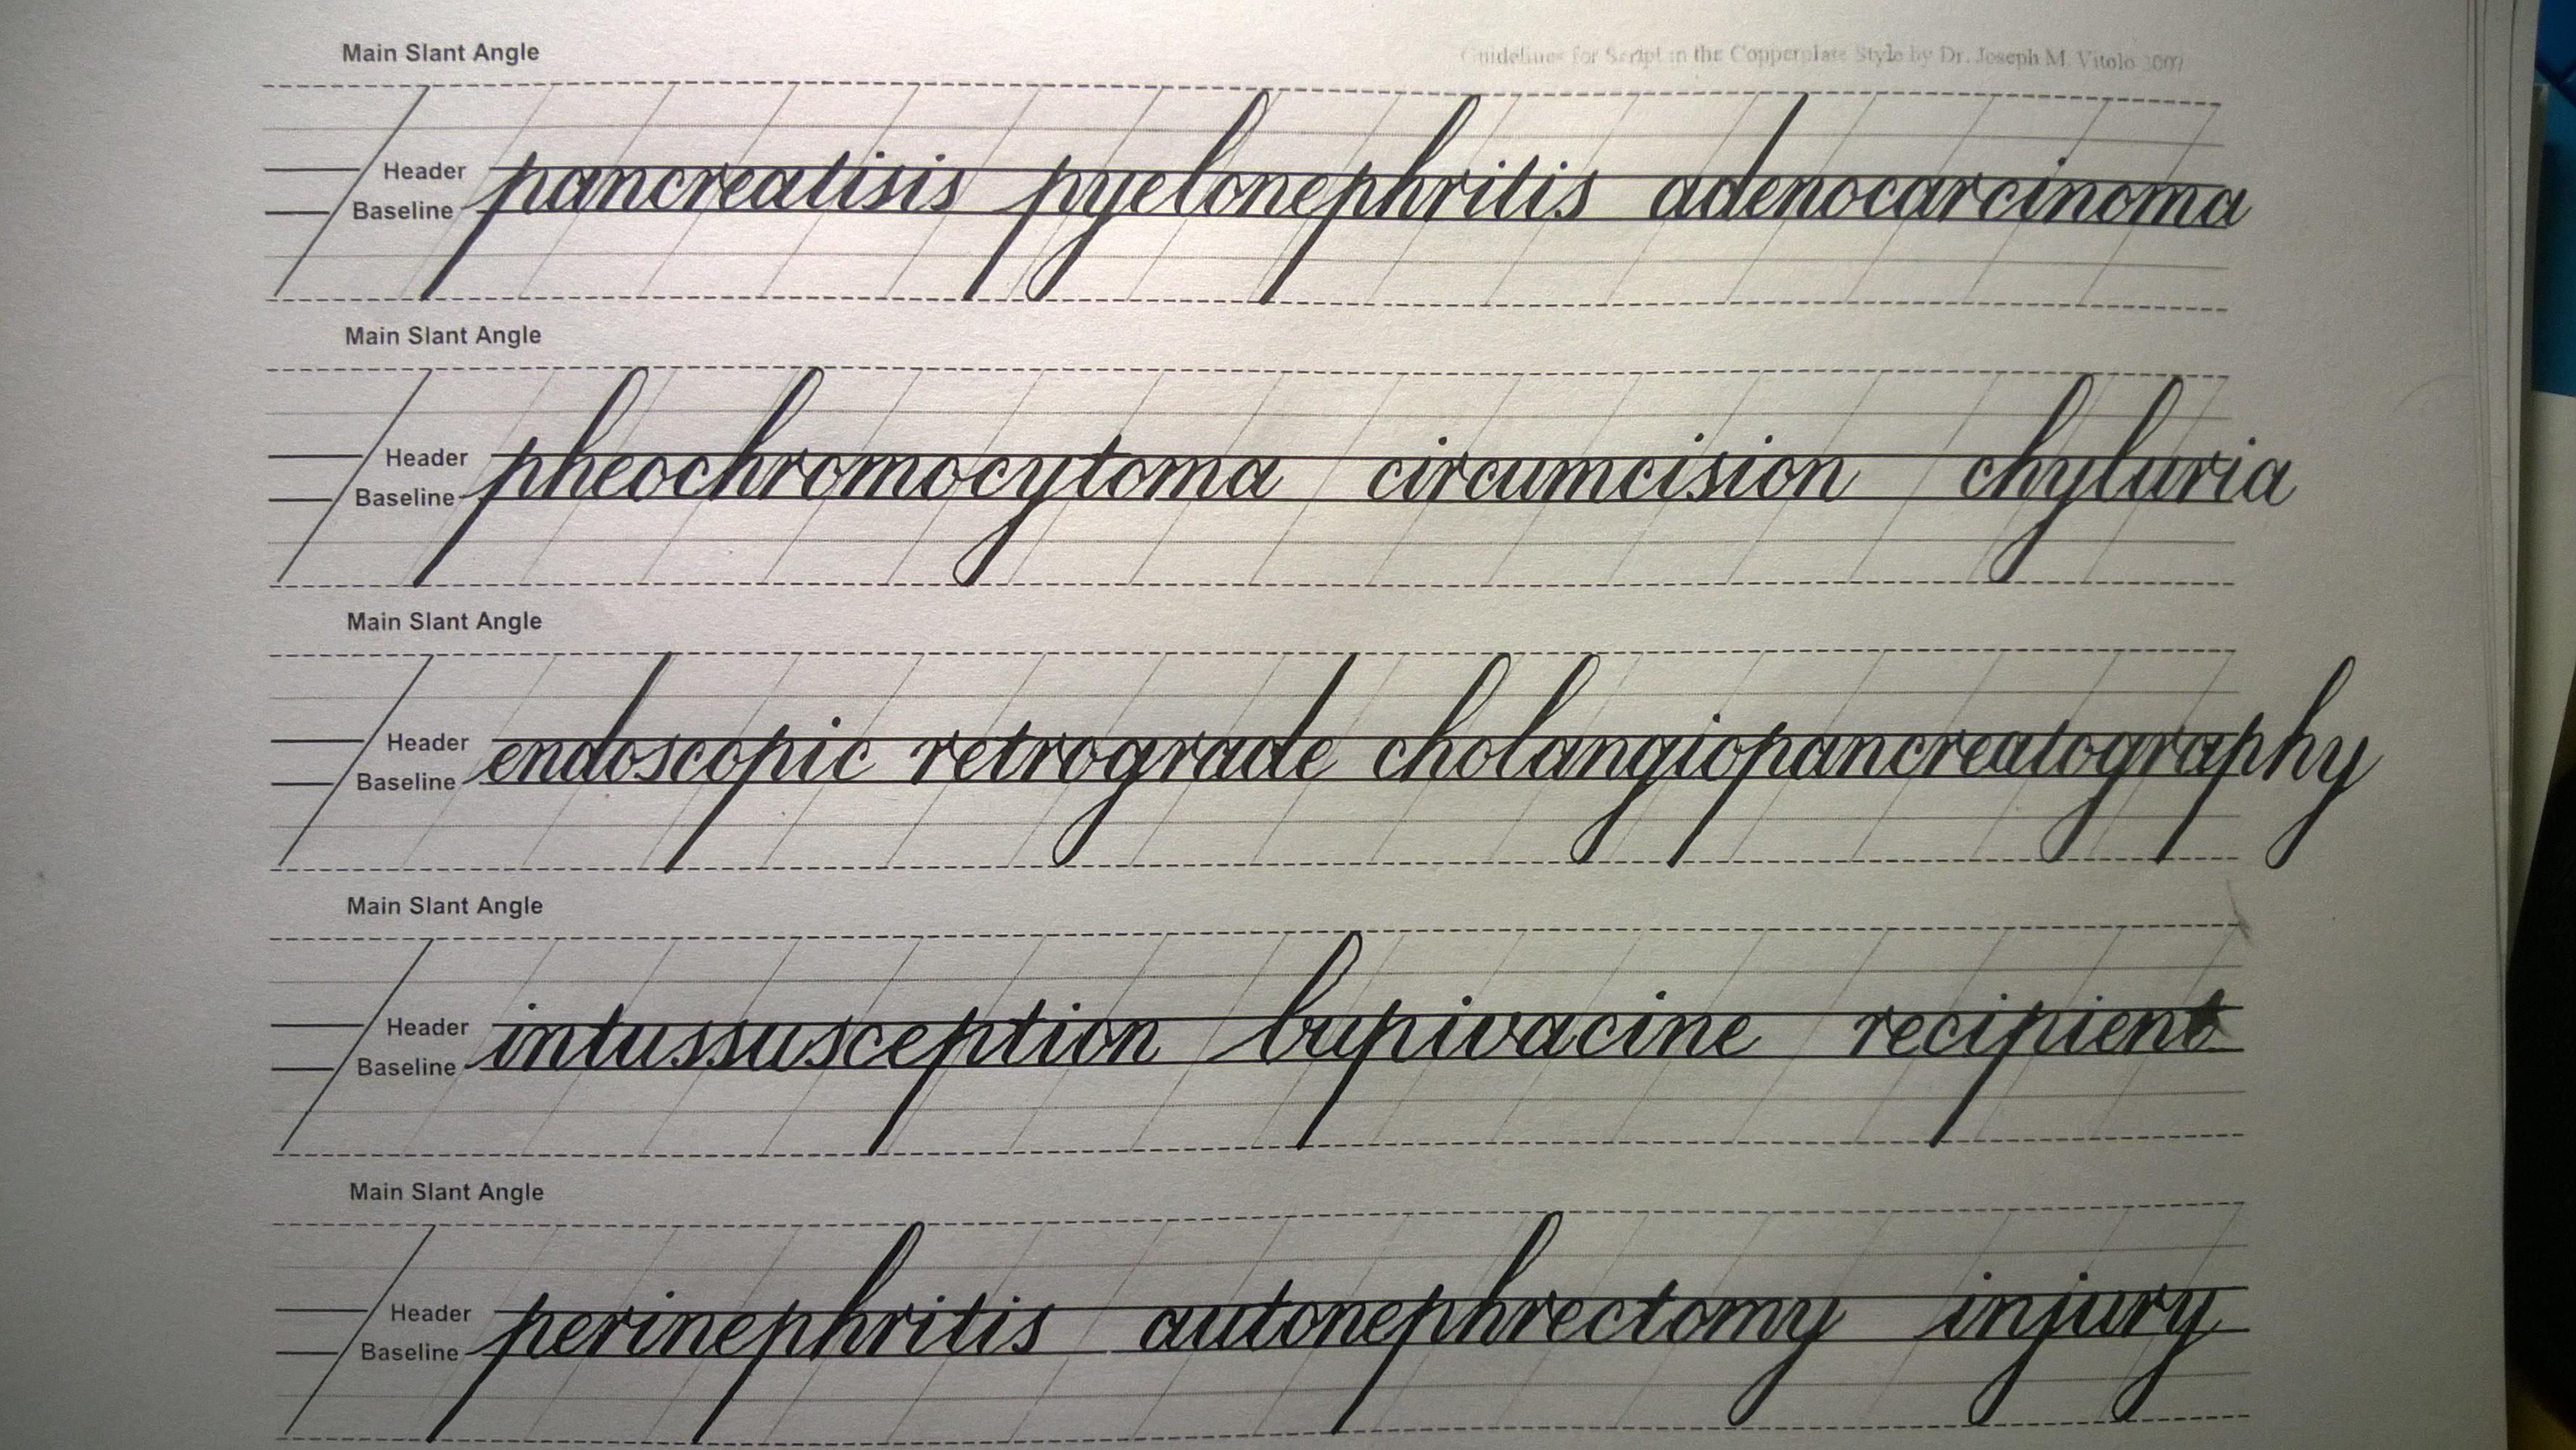 Main Slant Angle Guidelines for Script in the Copperplate Style by Dr. Joseph M. Vitolo 2007
Header
Baseline
pancreatisis pyelonephritis adenocarcinoma
Main Slant Angle
Header
Baseline
pheochromocytoma circumcision chyluria
Main Slant Angle
Header
Baseline
endoscopic retrograde cholangiopancreatography
Main Slant Angle
Header
Baseline
intussusception bupivacine recipient
Main Slant Angle
Header
Baseline
perinephritis autonephrectomy injury